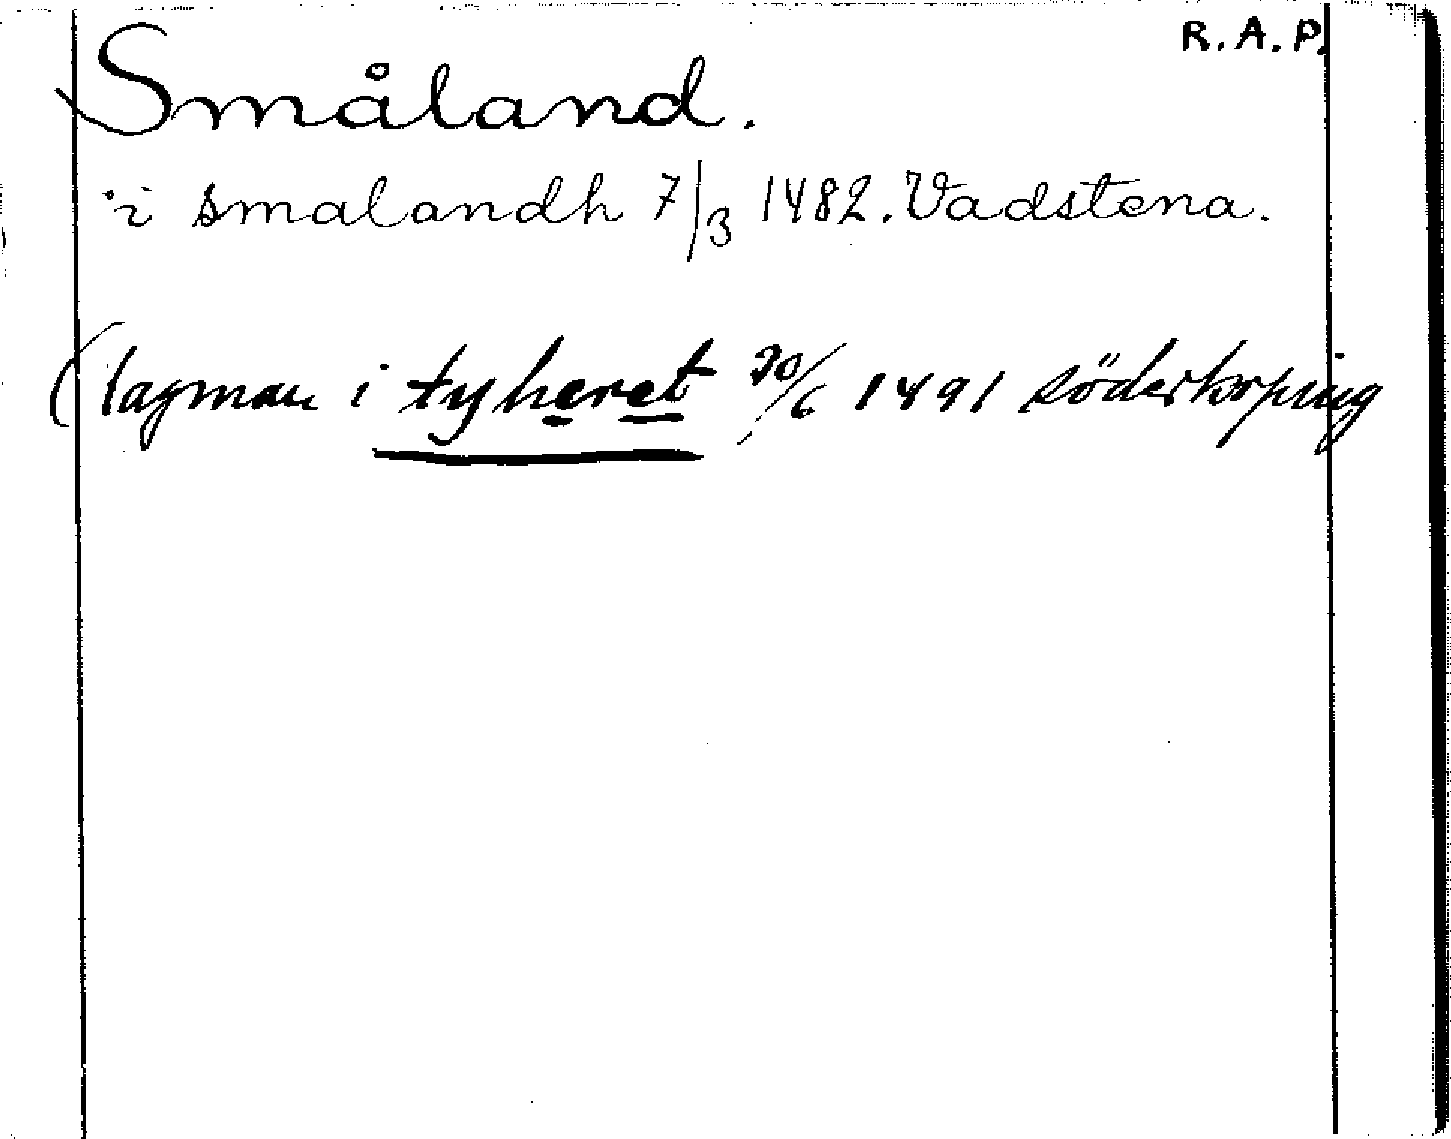 R.A.P.
Småland.
i smalandh 7/3 1482. Vadstena.
(lagman i tyheret 30/6 1491 söderköping